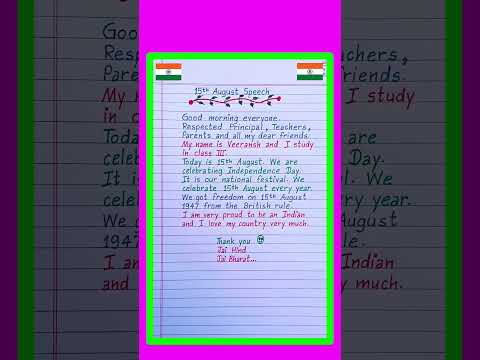 15th August Speech
Good morning everyone.
Respected Principal, Teachers,
Parents and all my dear friends.
My name is Veeransh and I study
in class III.
Today is 15th August. We are
celebrating Independence Day.
It is our national festival. We
celebrate 15th August every year.
We got freedom on 15th August
1947 from the British rule.
I am very proud to be an Indian
and I love my country very much.
Thank you
Jai Hind
Jai Bharat...